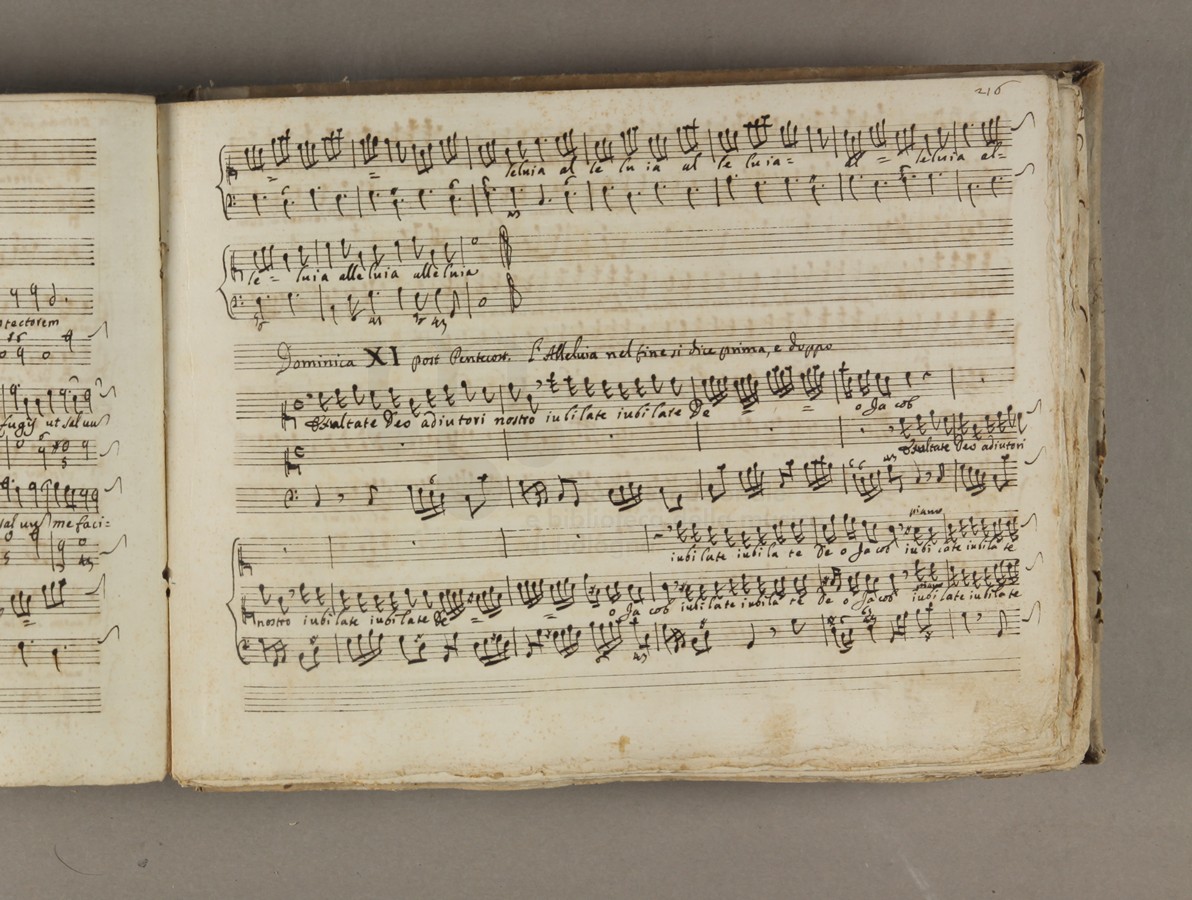 tectorem
fugij ut saluu
saluu me faci=
216
= = leluia al le lu ia al le luia= al = leluia al=
le = luia alleluia alleluia
Dominica XI post Pentecost. L'Alleluia nel fine si dice prima, e doppo
Exultate Deo adiutori nostro iubilate iubilate De = = o Ja cob
Exultate Deo adiutori
piano
iubilate iubila te De o Jacob iubilate iubilate
nostro iubilate iubilate De = = o Ja cob iubilate iubila te De o Jacob iubilate iubilate